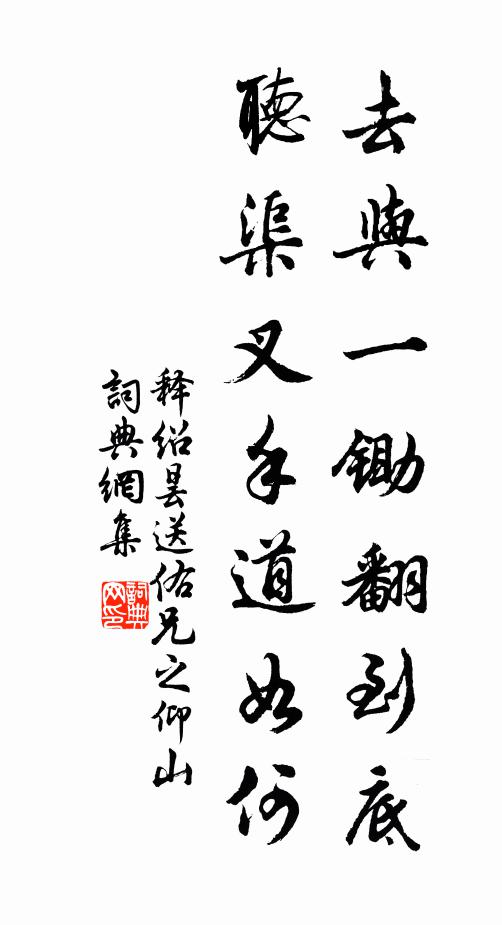 去與一鋤翻到底
聽渠叉手道如何
释紹曇送佑兄之仰山
詞典網集
詞典網印